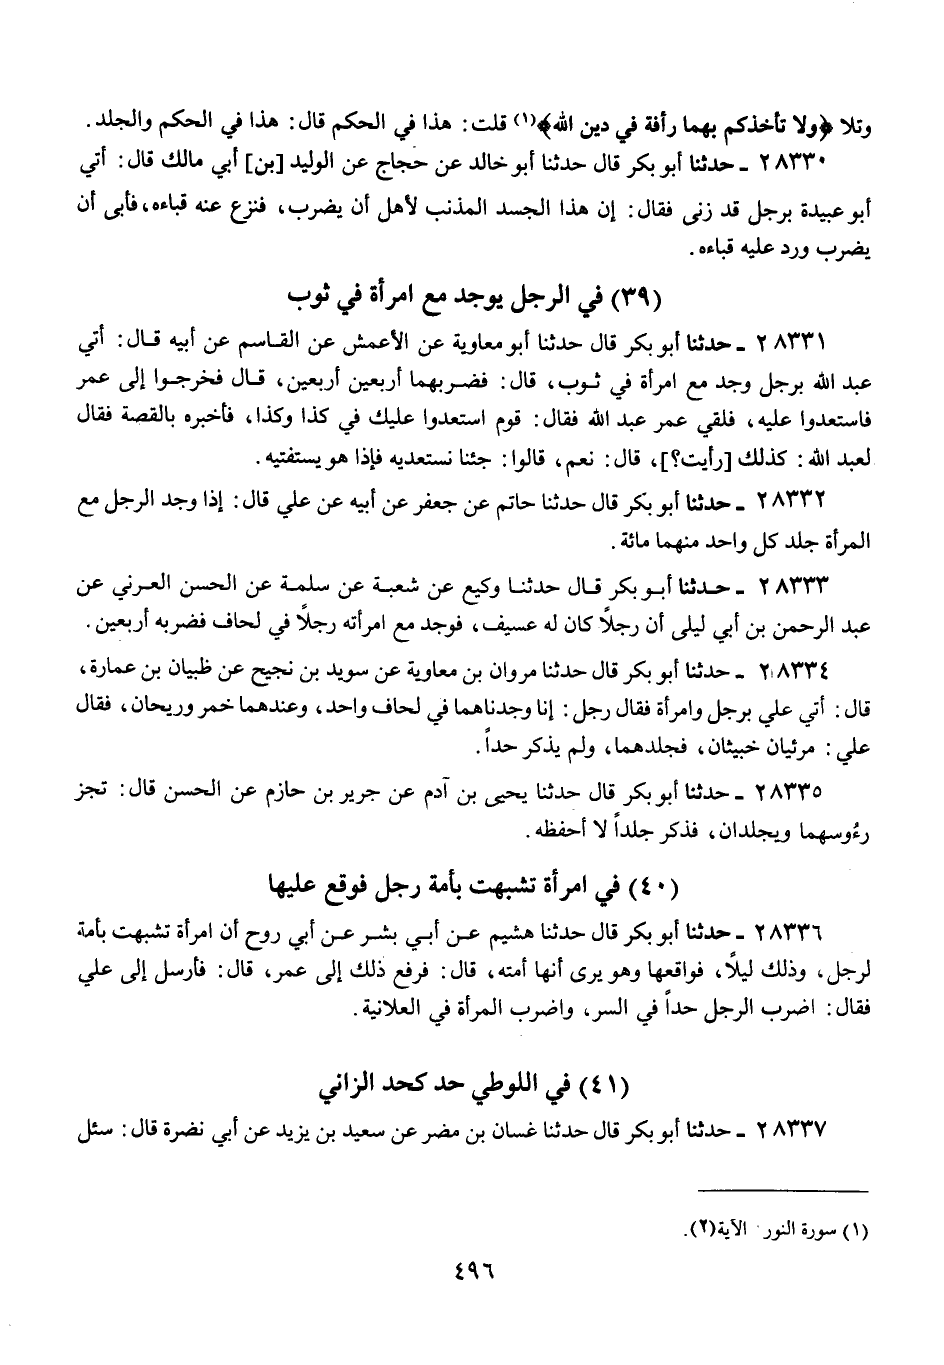 وتلا ﴿ولا تأخذكم بهما رأفة في دين الله﴾(١) قلت: هذا في الحكم قال: هذا في الحكم والجلد.
٢٨٣٣٠ ـ حدثنا أبو بكر قال حدثنا أبو خالد عن حجاج عن الوليد [بن] أبي مالك قال: أتي
أبو عبيدة برجل قد زنى فقال: إن هذا الجسد المذنب لأهل أن يضرب، فنزع عنه قباءه، فأبى أن
يضرب ورد عليه قباءه.
(٣٩) في الرجل يوجد مع امرأة في ثوب
٢٨٣٣١ ـ حدثنا أبو بكر قال حدثنا أبو معاوية عن الأعمش عن القاسم عن أبيه قال: أتي
عبد الله برجل وجد مع امرأة في ثوب، قال: فضربهما أربعين أربعين، قال فخرجوا إلى عمر
فاستعدوا عليه، فلقي عمر عبد الله فقال: قوم استعدوا عليك في كذا وكذا، فأخبره بالقصة فقال
لعبد الله: كذلك [رأيت؟]، قال: نعم، قالوا: جئنا نستعديه فإذا هو يستفتيه.
٢٨٣٣٢ ـ حدثنا أبو بكر قال حدثنا حاتم عن جعفر عن أبيه عن علي قال: إذا وجد الرجل مع
المرأة جلد كل واحد منهما مائة.
٢٨٣٣٣ ـ حدثنا أبو بكر قال حدثنا وكيع عن شعبة عن سلمة عن الحسن العرني عن
عبد الرحمن بن أبي ليلى أن رجلاً كان له عسيف، فوجد مع امرأته رجلاً في لحاف فضربه أربعين.
٢٨٣٣٤ ـ حدثنا أبو بكر قال حدثنا مروان بن معاوية عن سويد بن نجيح عن ظبيان بن عمارة،
قال: أتي علي برجل وامرأة فقال رجل: إنا وجدناهما في لحاف واحد، وعندهما خمر وريحان، فقال
علي: مرئيان خبيثان، فجلدهما، ولم يذكر حداً.
٢٨٣٣٥ ـ حدثنا أبو بكر قال حدثنا يحيى بن آدم عن جرير بن حازم عن الحسن قال: تجز
رءُوسهما ويجلدان، فذكر جلداً لا أحفظه.
(٤٠) في امرأة تشبهت بأمة رجل فوقع عليها
٢٨٣٣٦ ـ حدثنا أبو بكر قال حدثنا هشيم عن أبي بشر عن أبي روح أن امرأة تشبهت بأمة
لرجل، وذلك ليلاً، فواقعها وهو يرى أنها أمته، قال: فرفع ذلك إلى عمر، قال: فأرسل إلى علي
فقال: اضرب الرجل حداً في السر، واضرب المرأة في العلانية.
(٤١) في اللوطي حد كحد الزاني
٢٨٣٣٧ ـ حدثنا أبو بكر قال حدثنا غسان بن مضر عن سعيد بن يزيد عن أبي نضرة قال: سئل
(١) سورة النور الآية(٢).
٤٩٦